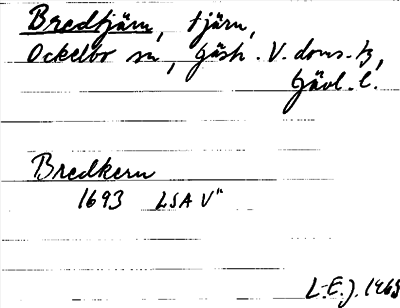 Bredtjärn, tjärn,
Ockelbo sn, Gästr. V. doms. tg,
Gävl. l.
Bredkern
1693 LSA V"
L-E. J. 1969